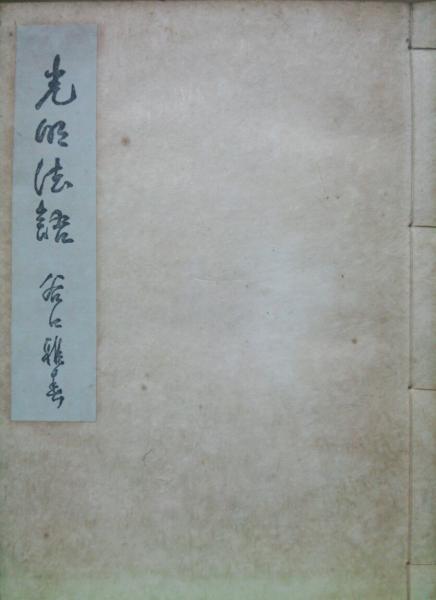 光明法語 谷口雅春